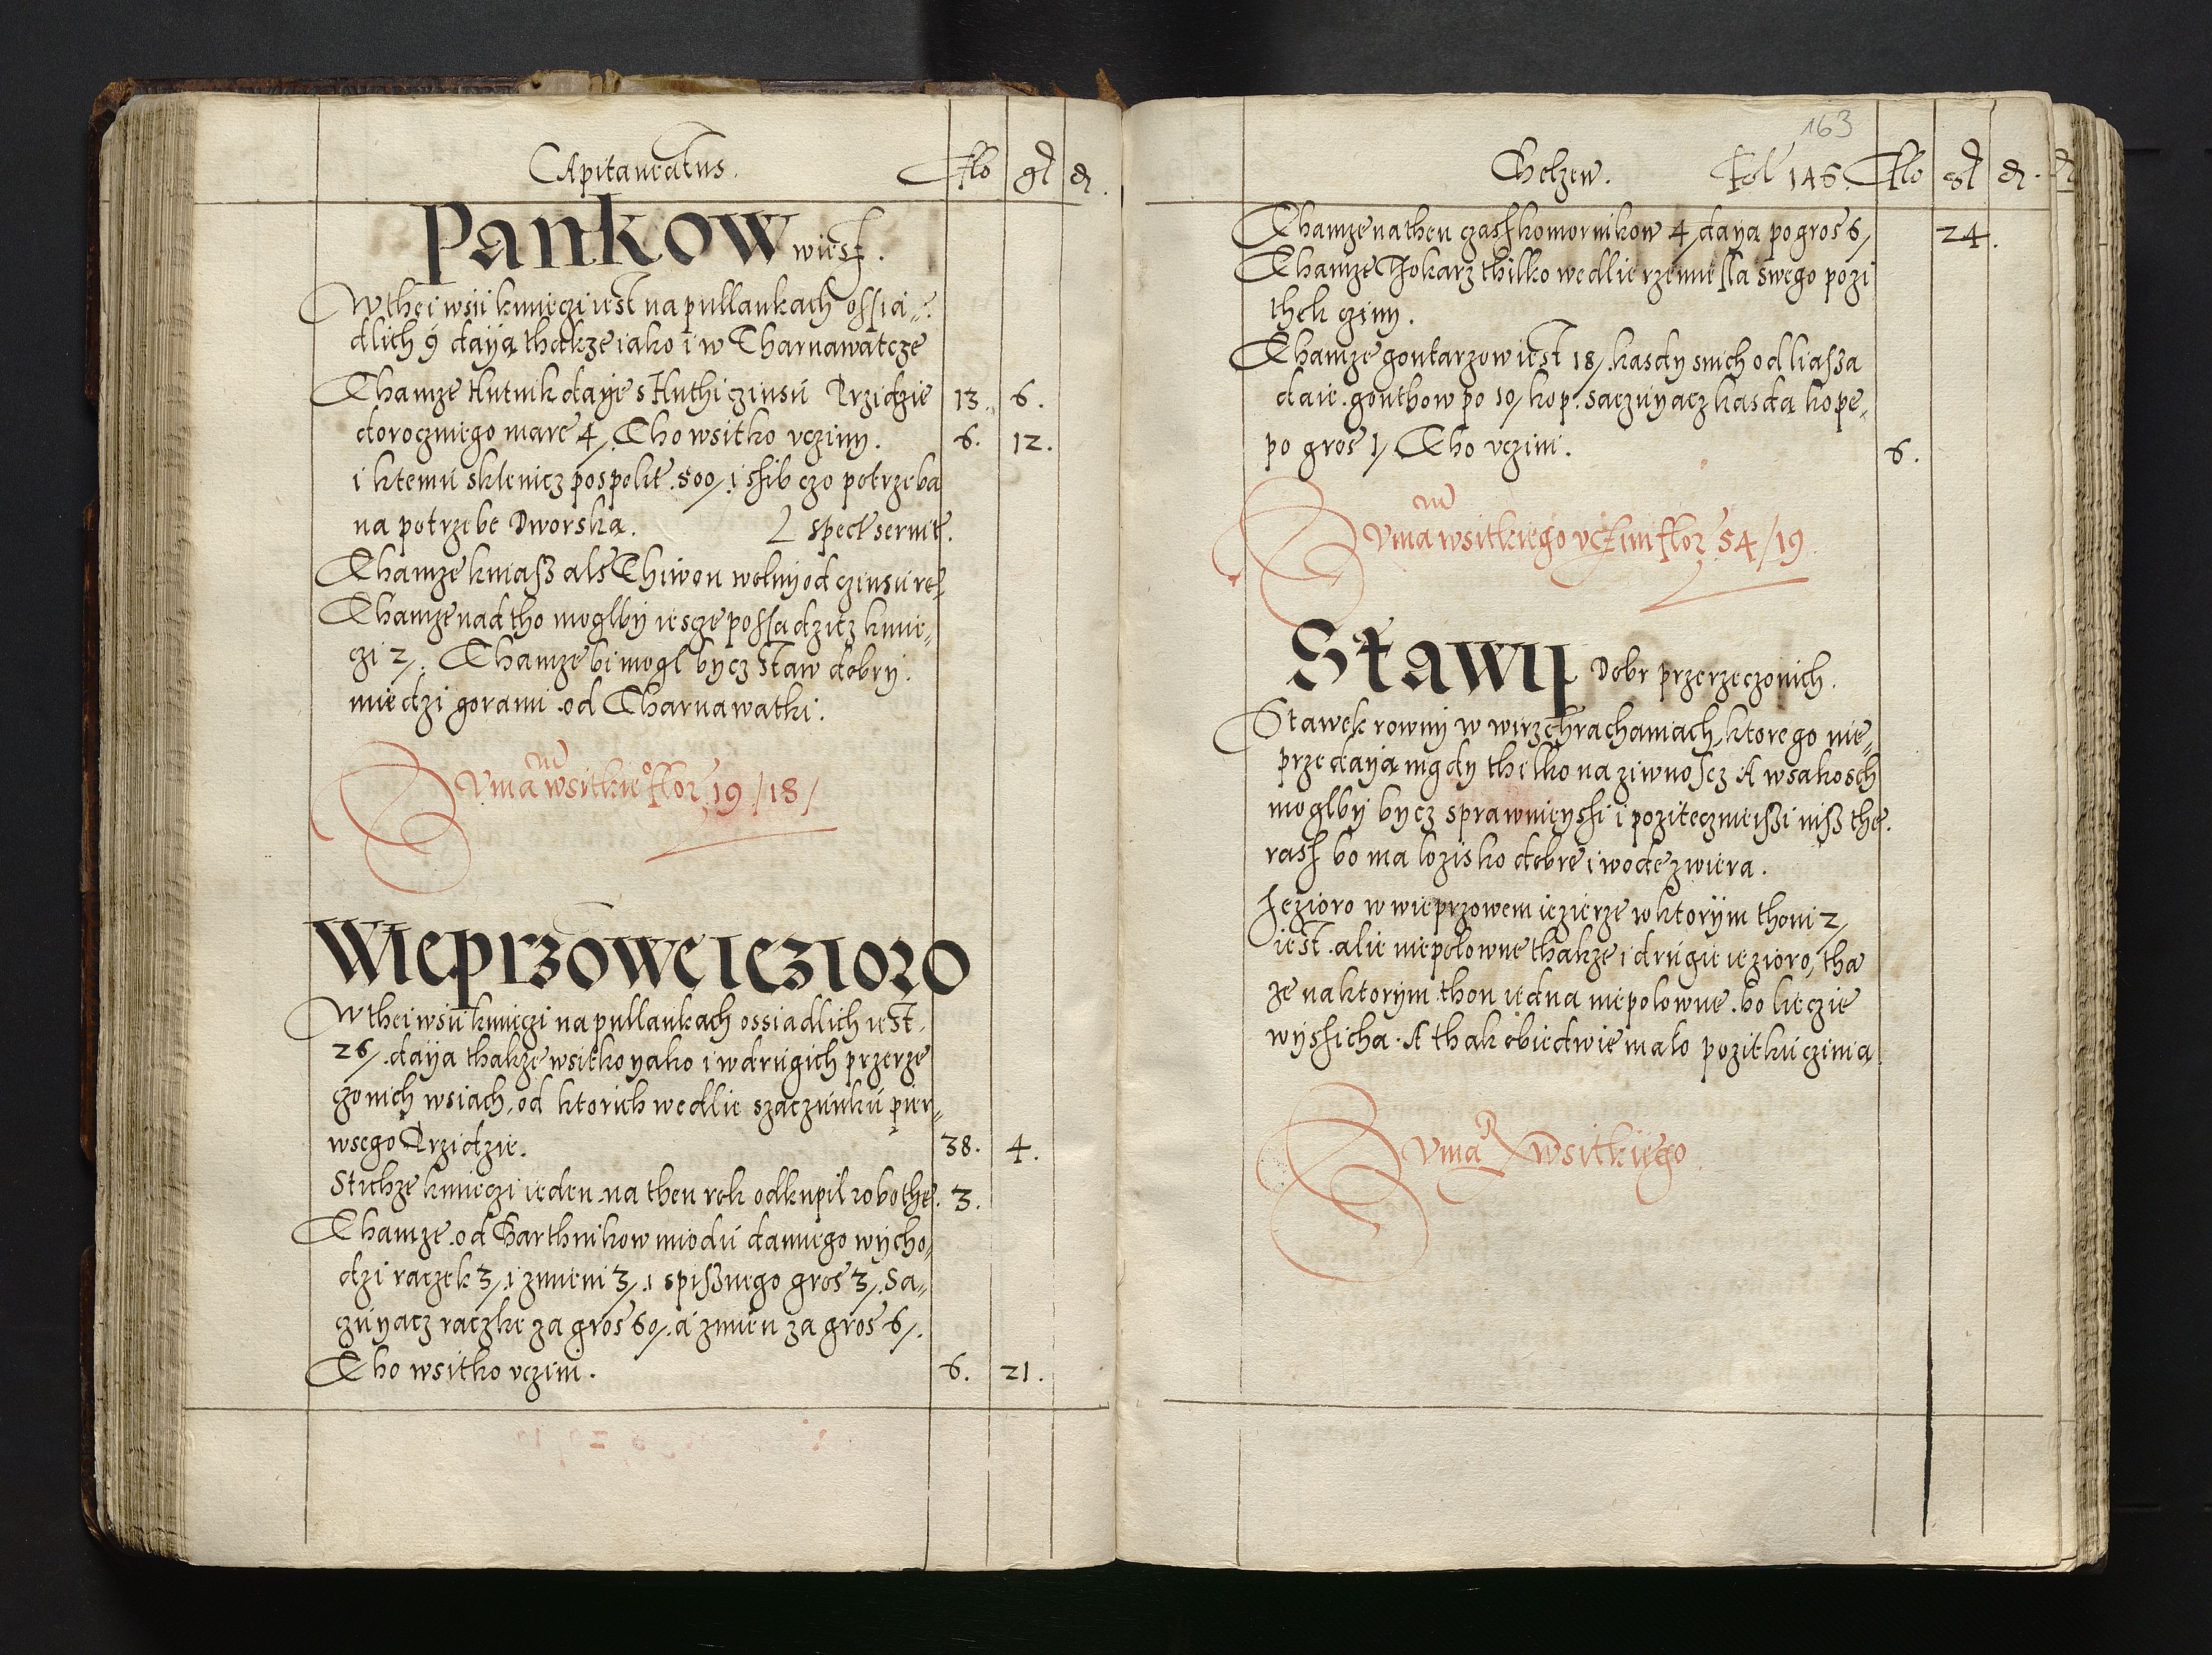 Capitaneatus. Flo gł d.
Pankow wiesſ.
W thei wsii kmieczi iest na pullankach ossia„
dlich 9 daÿą thakze iako i w Tharnawatcze
Thamze Hutnik daÿe s Huthi czinsú Arzidzie 13. 6.
doroczniego marc̃ 4/. Tho wsitko vcziny. 6. 12.
i ktemú sklenicz pospolit̃. 500/. i ſſib czo potrzeba
na potrzebe Dworska. 2 spect̃ sernit̃.
Thamze kniaſz als Thiwon wolny od czinsú
Thamze nad tho moglby iescze possadzicz kmie„
czi 2/. Thamze bi mogl bycz Staw dobry.
miedzi gorami od Tharnawatki.
Suma wsitkie° flor̃ 19/18/
Wieprzowe Iezioro
W thei wsii kmieczi na pullankach ossiadlich iest.
26/. daÿa thakze wsitko yako i w drugich przerze
czonich wsiach, od ktorich wedlie szaczúnkú pier„
wsego Arzidzie. 38. 4.
Stichze kmieczi ieden na then rok odkupil robothe. 3.
Thamze od Barthnikow miodú dannego wÿcho„
dzi raczek 3/. i zmieni 3/. i spiſznego gros̃ 3/. Sa„
czúyacz raczke za gros̃ 60/. á zmien za gros̃ 6/.
Tho wsitko vczini. 6. 21.
163
Belzen. Fol 146. Flo gł d.
Thamze na then czasſ komornikow 4/ daya po gros̃ 6/ 24.
Thamze Tokarz thilko wedlie rzemieſla swego pozi
thek cziny.
Thamze gontarzow iest 18/. kasdy snich od liaſza
daie gonthow po 10/ kop. saczúyacz kasda kope„
po gros̃ 1/ Tho vczini. 6.
Suma wsitkiego vczini flor̃ 54/19
Stawy Dobr przerzeczonich.
Stawek rowny w wirzchrachaniach, ktorego nie„
przedaÿą nigdy thilko na ziwnoſcz A wsakosch
moglby bycz sprawnieyſſi i poziteczniejſzi niſz the„
rasſ bo ma lozisko dobre i wode zwiera.
Jezioro w wieprzowem iezierze w ktorÿm thoni 2/
iest. alie niepolowne thakze i drúgie iezioro, tha
ze na ktorym thon iedna niepolowne. bo lieczie
wysſicha. A thak obiedwie malo pozitkú czinia.
Suma wsitkiego